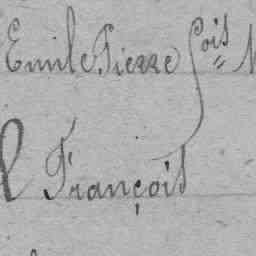 Emile Pierre fois
François